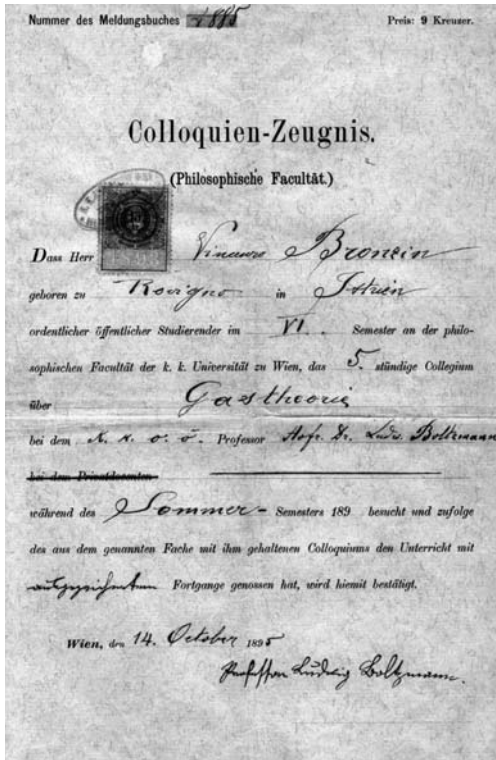 Nummer des Meldungsbuches 4885 Preis: 9 Kreuzer.
Colloquien-Zeugnis.
(Philosophische Facultät.)
Dass Herr Vincenzo Bronzin
geboren zu Rovigno in Istrien
ordentlicher öffentlicher Studierender im VI. Semester an der philo-
sophischen Facultät der k. k. Universität zu Wien, das 5. stündige Collegium
über Gastheorie
bei dem K. K. o. ö. Professor Hofr. Dr. Ludw. Boltzmann
bei dem Privatdocenten
während des Sommer- Semesters 189 besucht und zufolge
des aus dem genannten Fache mit ihm gehaltenen Colloquiums den Unterricht mit
ausgezeichnetem Fortgange genossen hat, wird hiemit bestätigt.
Wien, den 14. October 1895
Professor Ludwig Boltzmann.